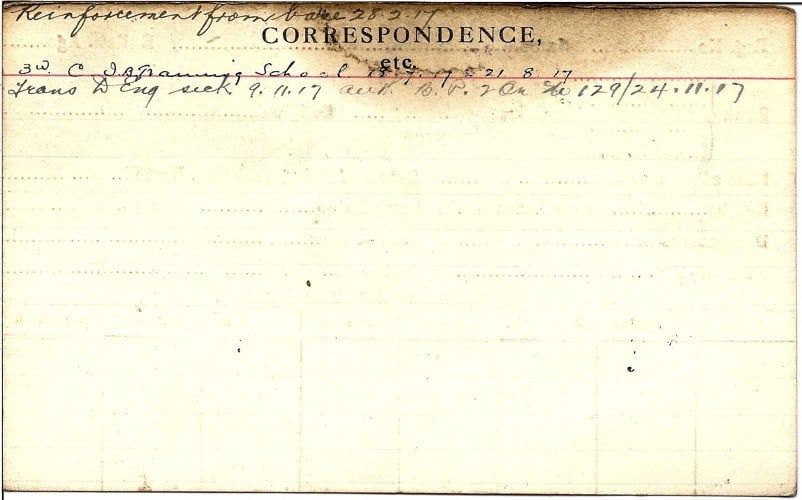 Reinforcement from base 28.2.17
CORRESPONDENCE,
etc.
3rd C Training School 21 8 17
Trans D Eng sick 9.11.17 auth B. 2 On 129/24.11.17